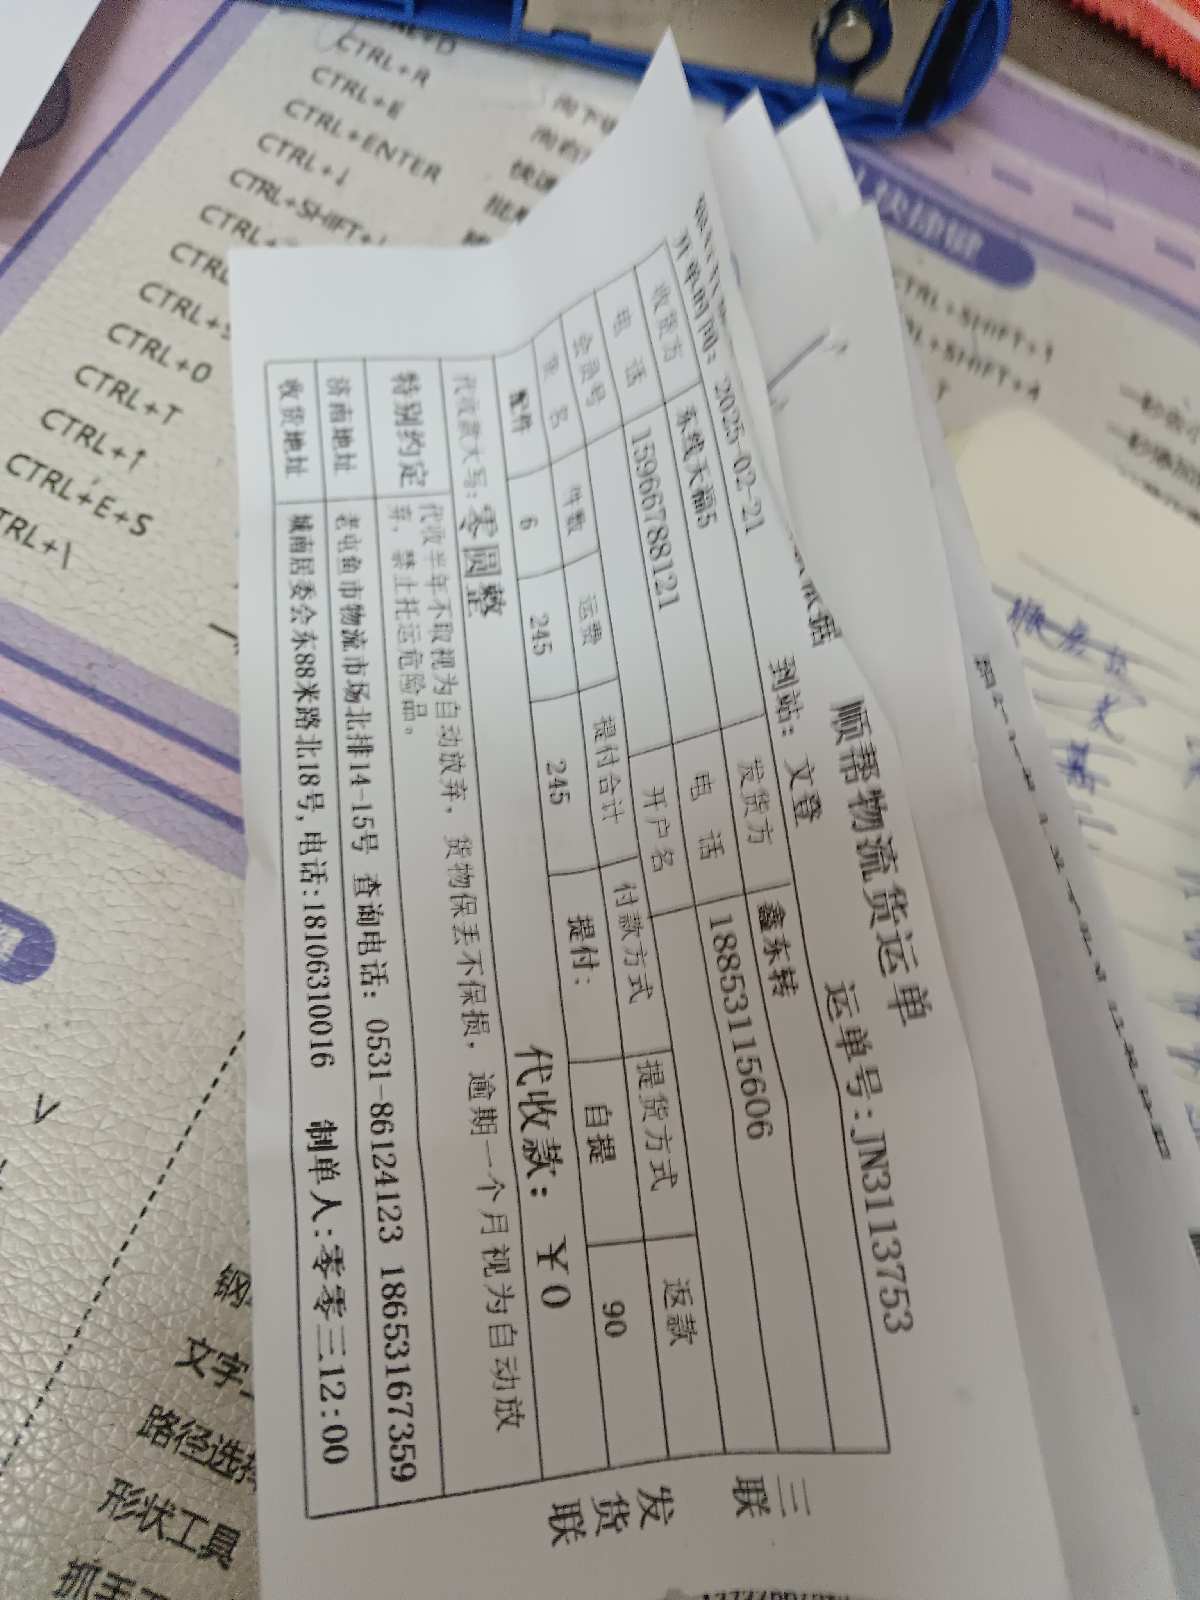 顺帮物流货运单
运单号:JN3113753
开单时间: 2025-02-21
到站: 文登
收货方 东线天福5 发货方 鑫东转
电话 15966788121 电话 18853115606
会员号 开户名
件数 运费 提付合计 付款方式 提货方式 返款
配件 6 245 245 提付: 自提 90
代收款大写: 零圆整 代收款: ¥0
特别约定 代收半年不取视为自动放弃, 货物保丢不保损, 逾期一个月视为自动放
弃, 禁止托运危险品。
济南地址 老屯鱼市物流市场北排14-15号 查询电话: 0531-86124123 18653167359
收货地址 城南居委会东88米路北18号, 电话:18106310016 制单人:零零三12:00
三联
发货联
CTRL+R
CTRL+E
CTRL+ENTER
CTRL+↓
CTRL+O
CTRL+T
CTRL+↑
CTRL+E+S
快捷键
CTRL+SHIFT+1
形状工具